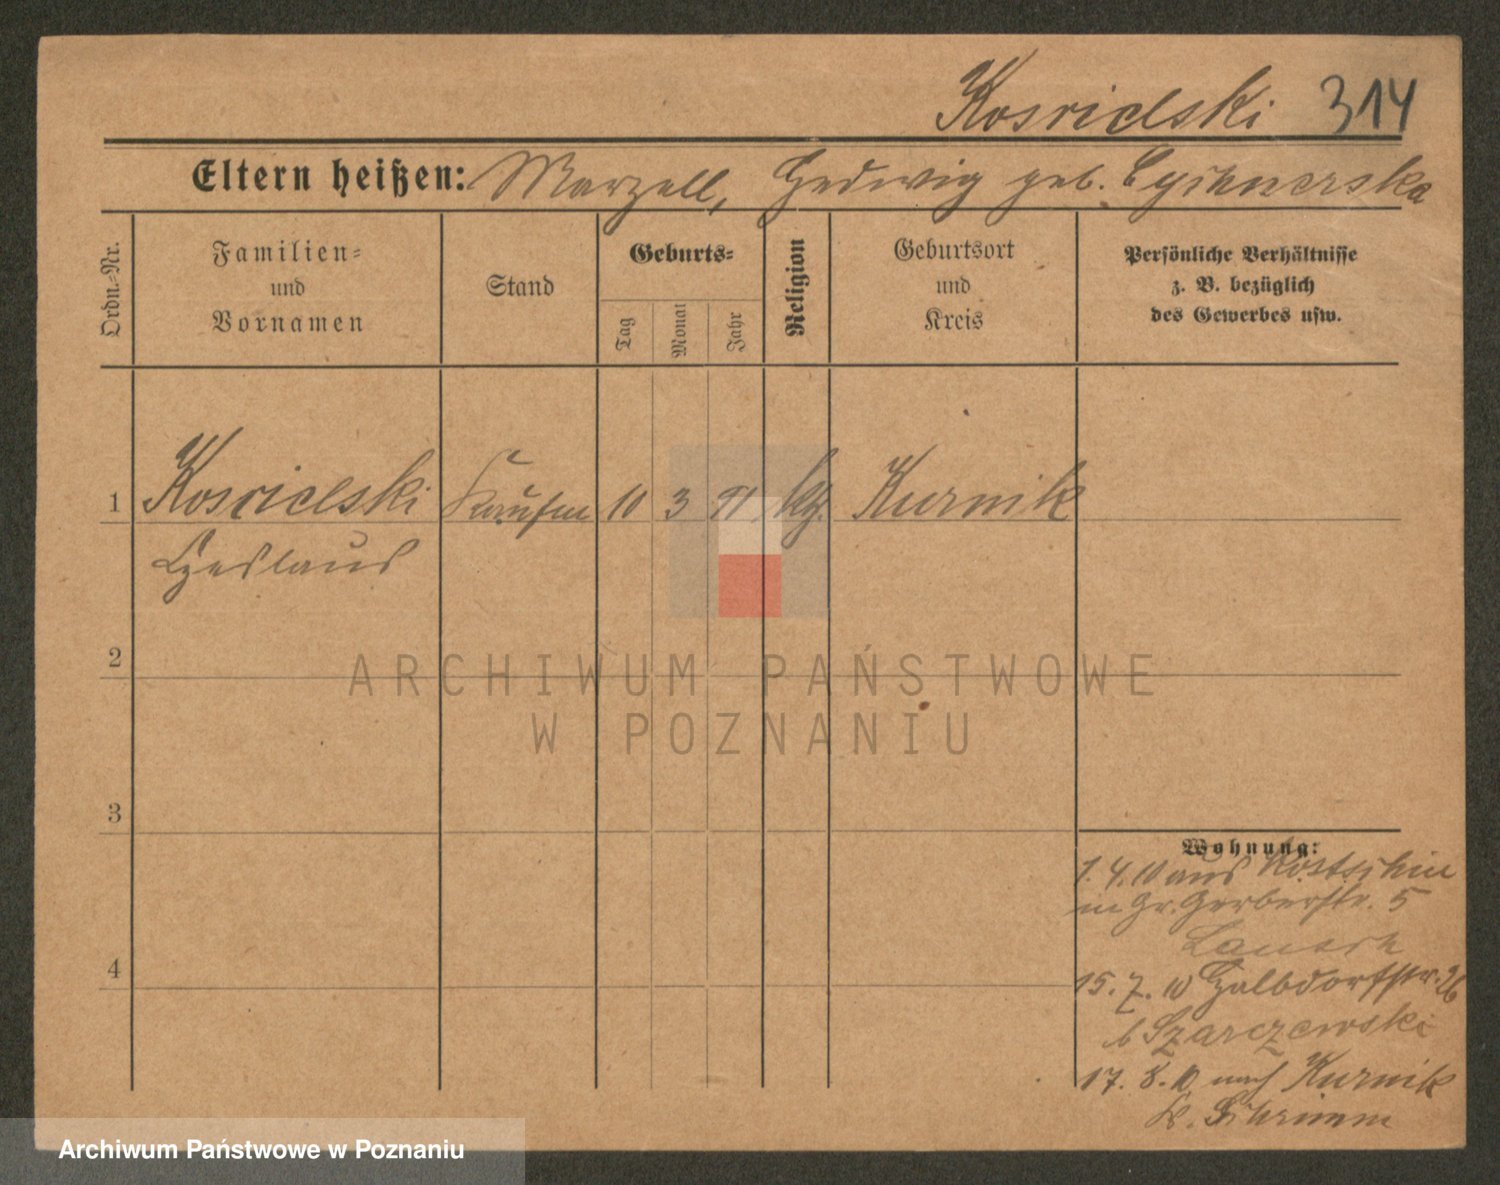 Kosrielski 314
Eltern heißen: Marzell, Hedwig geb.
Ordn.=Nr.
Familien=
und
Vornamen
Stand
Geburts=
Tag
Monat
Jahr
Religion
Geburtsort
und
Kreis
Persönliche Verhältnisse
z. B. bezüglich
des Gewerbes usw.
1 Kosrielski Kaufm 10 3 91 kth. Kurnik
Czeslaus
2
3
4
Wohnung:
1. 4. 10 aus Kostschin
in Gr. Gerberstr. 5
15. 7. 10 Halbdorfstr. 26
b Szarczewski
17. 8. 10 nach Kurnik
Kr. Schrimm
ARCHIWUM PAŃSTWOWE
W POZNANIU
Archiwum Państwowe w Poznaniu